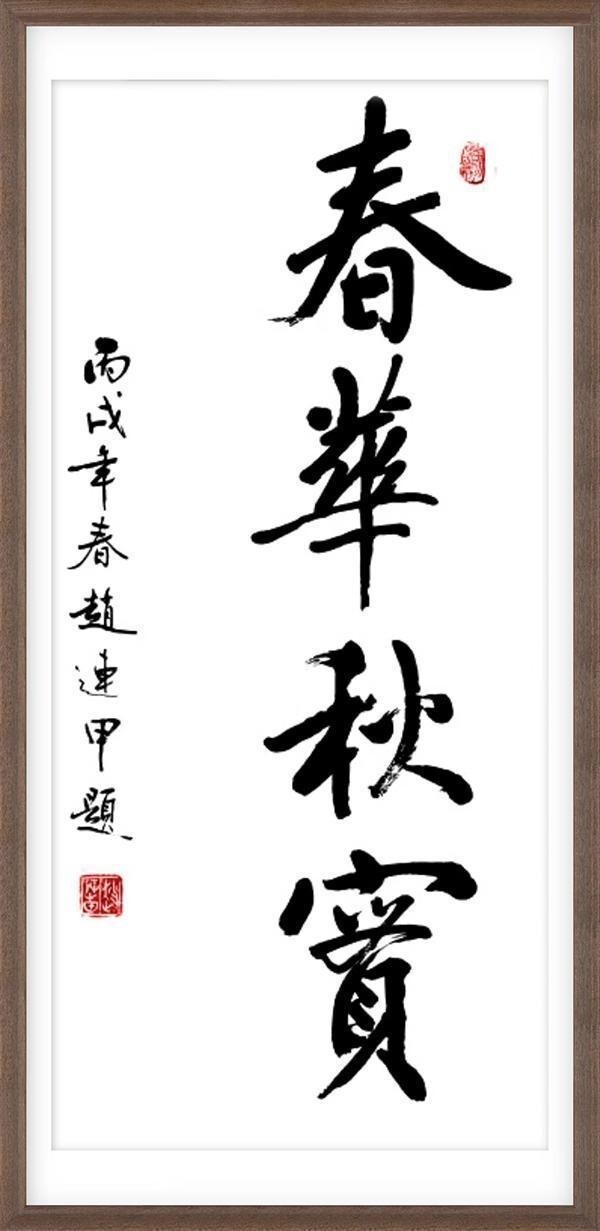 春華秋實
丙戌年春趙連甲題